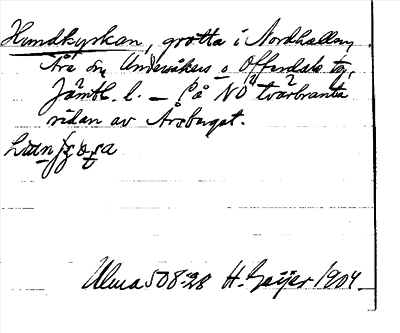 Hundkyrkan, grotta i Nordhallen,
Åre sn, Undersåkers o. Offerdals tg,
Jämtl. l. – På NO tvärbranta
sidan av Åreberget.
Ulma 508:28 H. Geijer 1904.